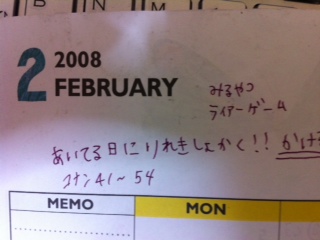 B N M
2 2008
FEBRUARY
みるやつ
ライアーゲーム
あいてる日にりれきしょかく!!
コナン41~54
MEMO MON